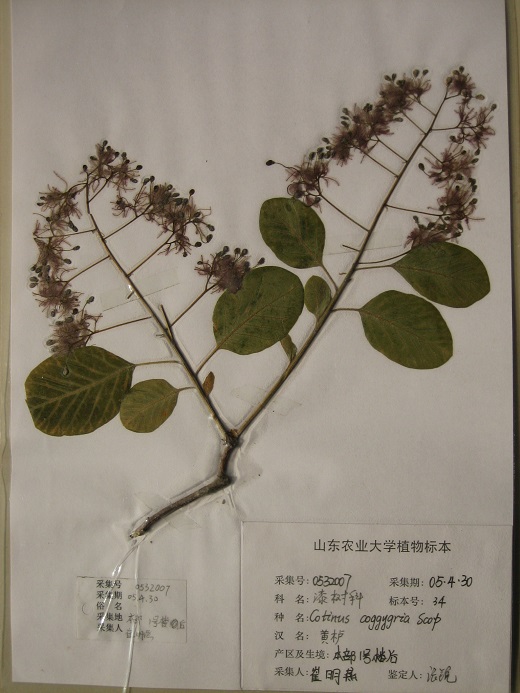 采集号 0532007
采集期 05.4.30
俗名
采集地 本部 1号楼后
采集人
山东农业大学植物标本
采集号: 0532007 采集期: 05.4.30
科名: 漆树科 标本号: 34
种名: Cotinus coggygria Scop
汉名: 黄栌
产区及生境: 本部1号楼后
采集人: 崔明燕 鉴定人: